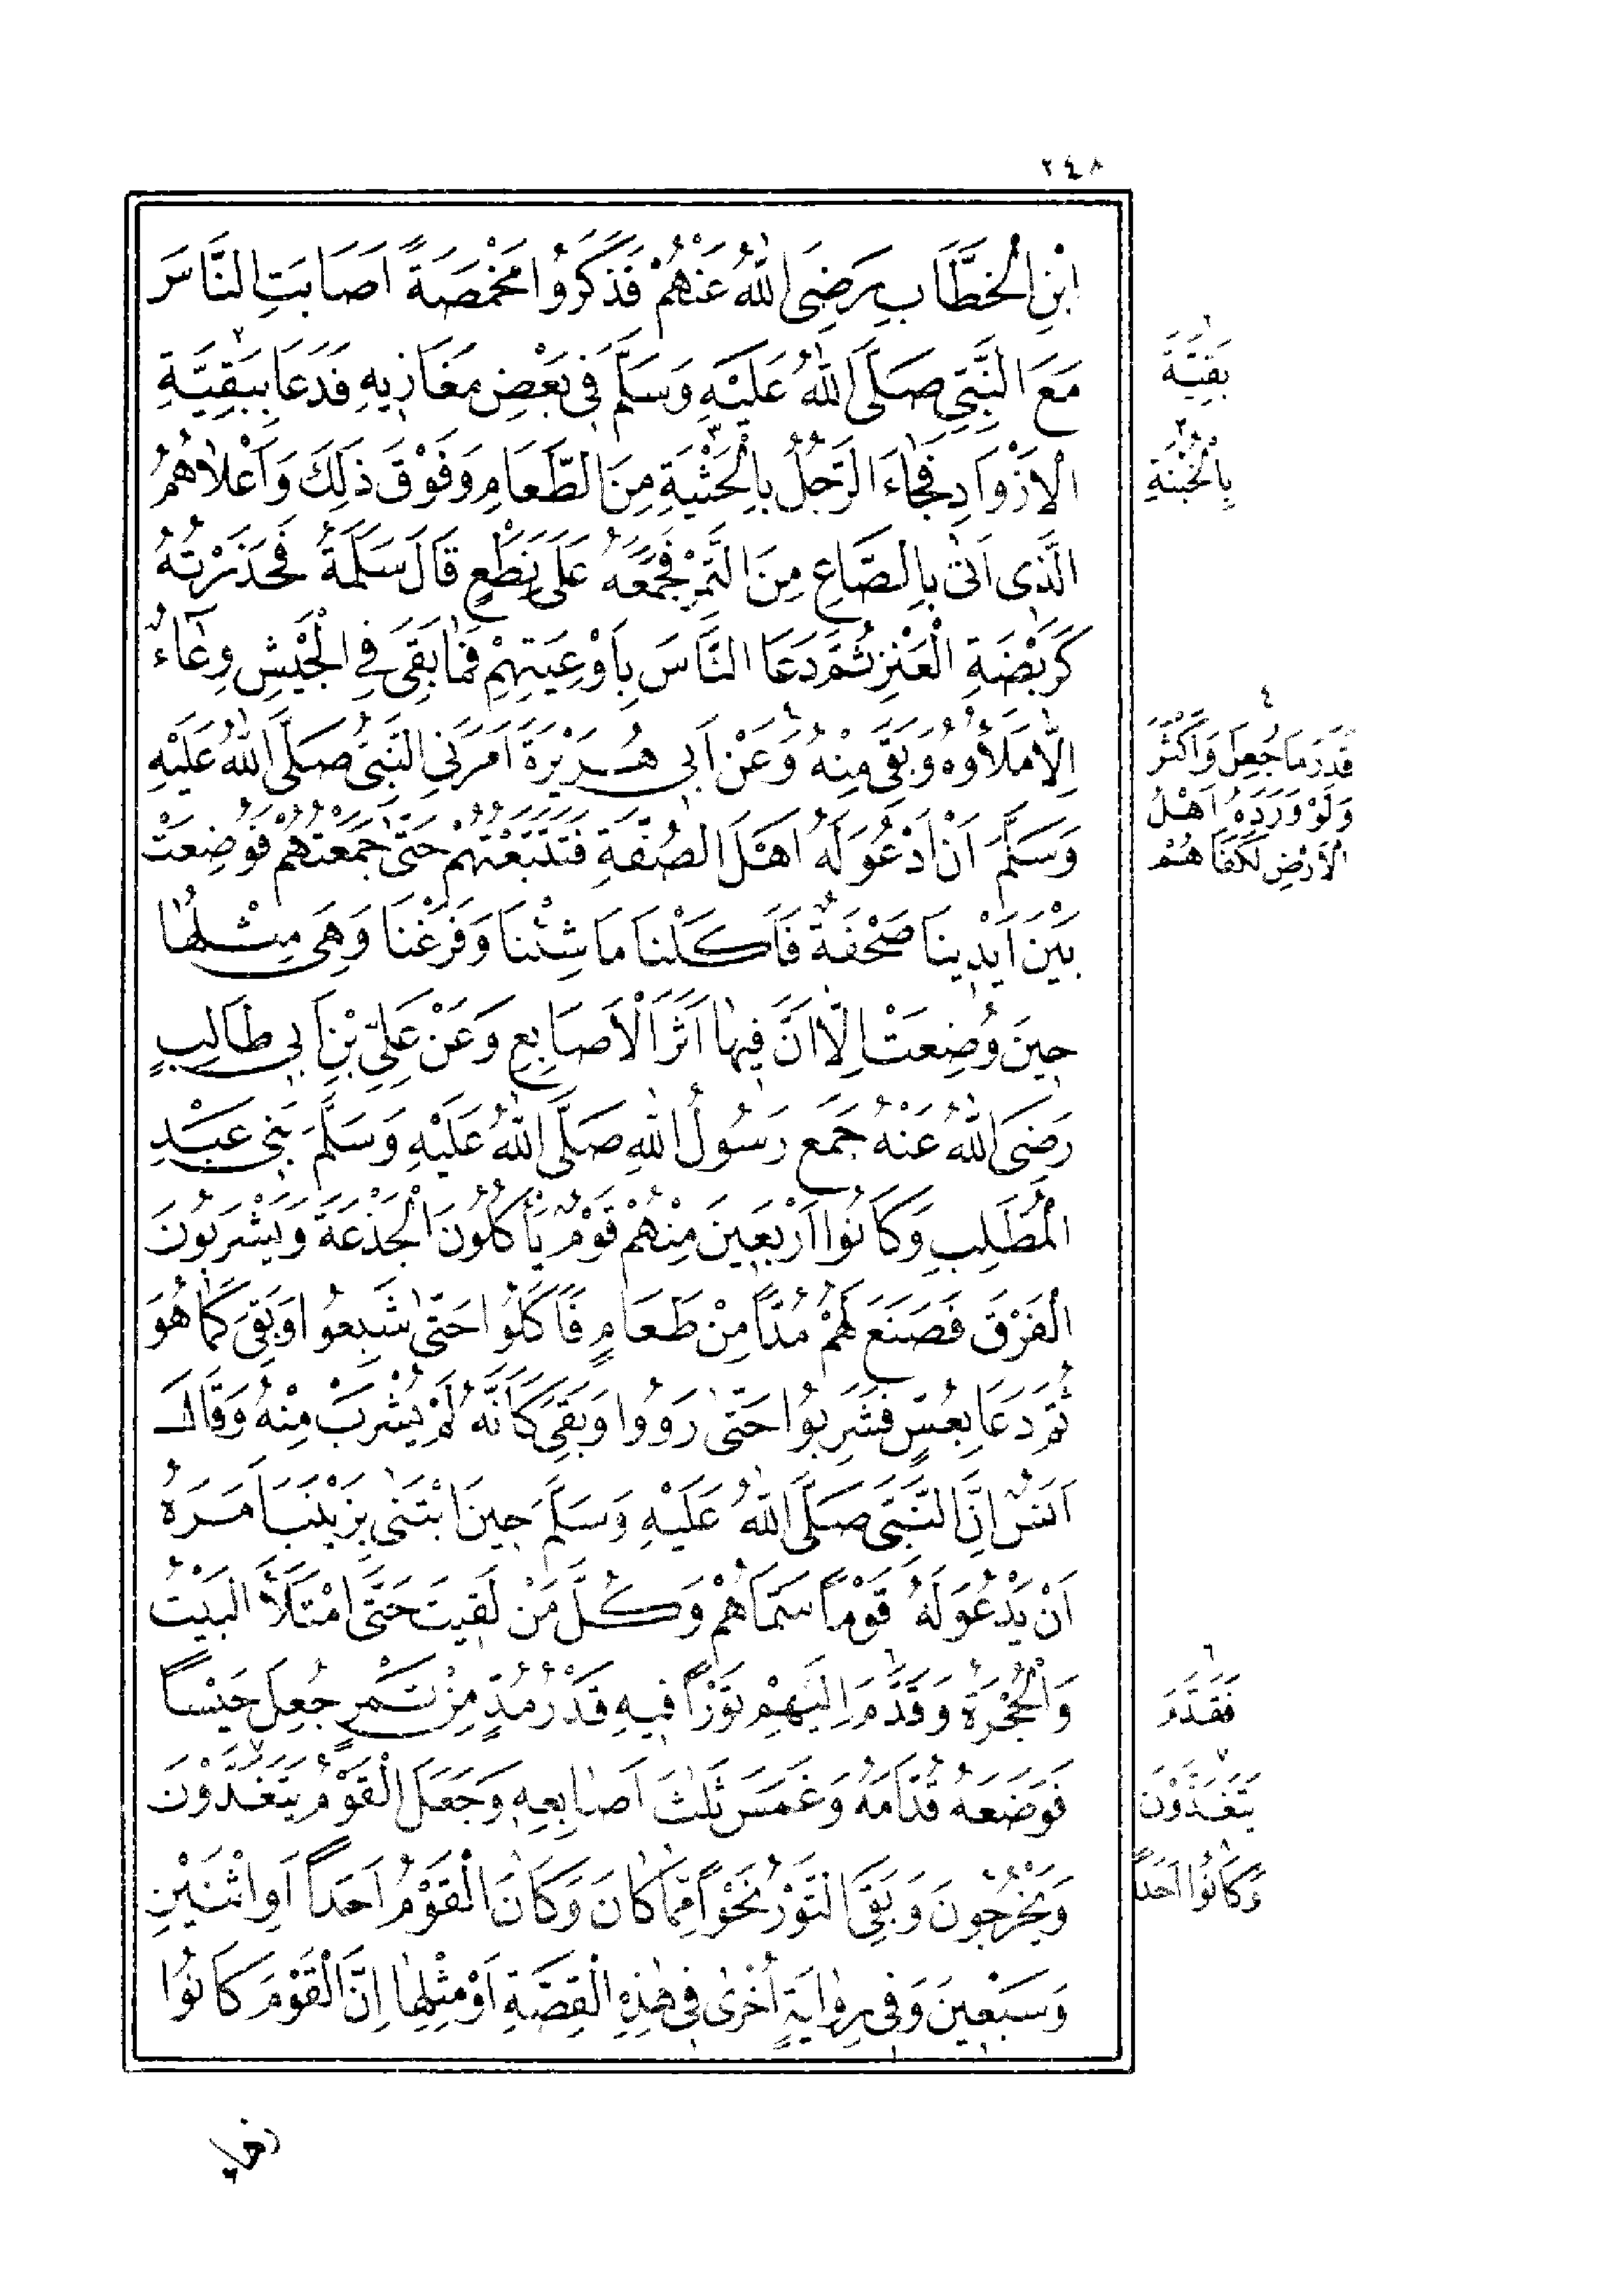 ٢٤٨
ابْنِ الْخَطَّابِ رَضِىَ اللهُ عَنْهُمْ فَذَكَرُوا مَخْمَصَةً اَصَابَتِ النَّاسَ
مَعَ النَّبِىِّ صَلَّى اللهُ عَلَيْهِ وَسَلَّمَ فِى بَعْضِ مَغَازِيهِ فَدَعَا بِبَقِيَّةِ
الْاَزْوَادِ فَجَاءَ الرَّجُلُ بِالْحَثْيَةِ مِنَ الطَّعَامِ وَفَوْقَ ذٰلِكَ وَاَعْلَاهُمُ
الَّذِى اَتٰى بِالصَّاعِ مِنَ التَّمْرِ فَجَمَعَهُ عَلَى نِطَعٍ قَالَ سَلَمَةُ فَحَزَرْتُهُ
كَرَبْضَةِ الْعَنْزِ ثُمَّ دَعَا النَّاسَ بِاَوْعِيَتِهِمْ فَمَا بَقِىَ فِى الْجَيْشِ وِعَاءٌ
اِلَّا مَلَأُوهُ وَبَقِىَ مِنْهُ ٤ وَعَنْ اَبِى هُرَيْرَةَ اَمَرَنِى النَّبِىُّ صَلَّى اللهُ عَلَيْهِ
وَسَلَّمَ اَنْ اَدْعُوَ لَهُ اَهْلَ الصُّفَّةِ فَتَتَبَّعْتُهُمْ حَتّٰى جَمَعْتُهُمْ فَوُضِعَتْ
بَيْنَ اَيْدِينَا صَحْفَةٌ فَاَكَلْنَا مَا شِئْنَا وَفَرَغْنَا وَهِىَ مِثْلُهَا
حِينَ وُضِعَتْ اِلَّا اَنَّ فِيهَا اَثَرَ الْاَصَابِعِ وَعَنْ عَلِىِّ بْنِ اَبِى طَالِبٍ
رَضِىَ اللهُ عَنْهُ جَمَعَ رَسُولُ اللهِ صَلَّى اللهُ عَلَيْهِ وَسَلَّمَ بَنِى عَبْدِ
الْمُطَّلِبِ وَكَانُوا اَرْبَعِينَ مِنْهُمْ قَوْمٌ يَأْكُلُونَ الْجَذَعَةَ وَيَشْرَبُونَ
الْفَرَقَ فَصَنَعَ لَهُمْ مُدًّا مِنْ طَعَامٍ فَاَكَلُوا حَتّٰى شَبِعُوا وَبَقِىَ كَمَا هُوَ
ثُمَّ دَعَا بِعُسٍّ فَشَرِبُوا حَتّٰى رَوُوا وَبَقِىَ كَاَنَّهُ لَمْ يُشْرَبْ مِنْهُ وَقَالَ
اَنَسٌ اِنَّ النَّبِىَّ صَلَّى اللهُ عَلَيْهِ وَسَلَّمَ حِينَ ابْتَنٰى بِزَيْنَبَ اَمَرَهُ
اَنْ يَدْعُوَ لَهُ قَوْمًا سَمَّاهُمْ وَكُلَّ مَنْ لَقِيتَ حَتَّى امْتَلَأَ الْبَيْتُ
وَالْحُجْرَةُ وَقَدَّمَ اِلَيْهِمْ تَوْرًا فِيهِ قَدْرُ مُدٍّ مِنْ تَمْرٍ جُعِلَ حَيْسًا
فَوَضَعَهُ قُدَّامَهُ وَغَمَسَ ثَلٰثَ اَصَابِعِهِ وَجَعَلَ الْقَوْمُ يَتَغَدَّوْنَ
وَيَخْرُجُونَ وَبَقِىَ التَّوْرُ نَحْوًا مِمَّا كَانَ وَكَانَ الْقَوْمُ اَحَدًا اَوِ اثْنَيْنِ
وَسَبْعِينَ وَفِى رِوَايَةٍ اُخْرٰى فِى هٰذِهِ الْقِصَّةِ اَوْ مِثْلِهَا اِنَّ الْقَوْمَ كَانُوا
بَقِيَّةَ
بِالْخُبْنَةِ
٤
قَدْرَ مَا جُعِلَ وَاَكْثَرَ
وَلَوْ وَرَدَهُ اَهْلُ
الْاَرْضِ لَكَفَاهُمْ
٦
فَقَدَّمَ
٧
يَتَغَذَّوْنَ
وَكَانُوا اَحَدًا
زهاء